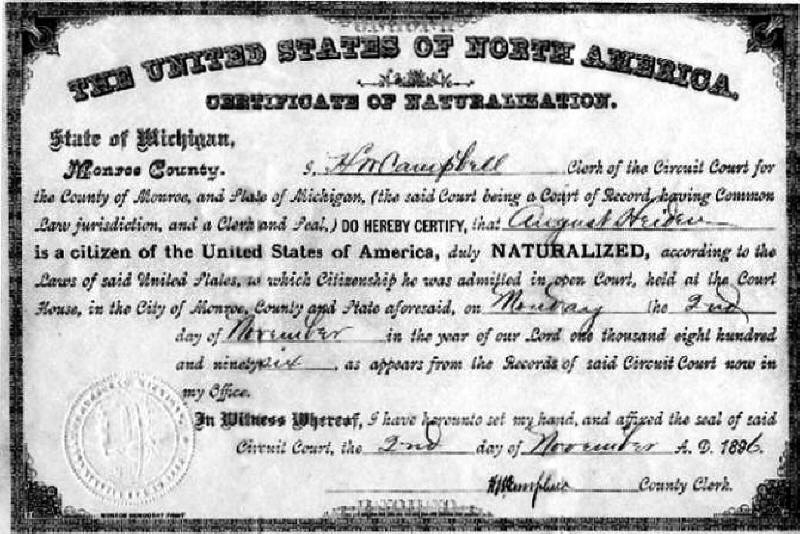 THE UNITED STATES OF NORTH AMERICA.
CERTIFICATE OF NATURALIZATION.
State of Michigan,
Monroe County. I, H W Campbell Clerk of the Circuit Court for
the County of Monroe, and State of Michigan, (the said Court being a Court of Record, having Common
Law jurisdiction, and a Clerk and Seal,) DO HEREBY CERTIFY, that August Heiden
is a citizen of the United States of America, duly NATURALIZED, according to the
Laws of said United States, to which Citizenship he was admitted in open Court, held at the Court
House, in the City of Monroe, County and State aforesaid, on Monday the 2nd
day of November in the year of our Lord one thousand eight hundred
and ninety six, as appears from the Records of said Circuit Court now in
my Office.
In Witness Whereof, I have hereunto set my hand, and affixed the seal of said
Circuit Court, the 2nd day of November A. D. 1896.
H W Campbell County Clerk.
MONROE DEMOCRAT PRINT